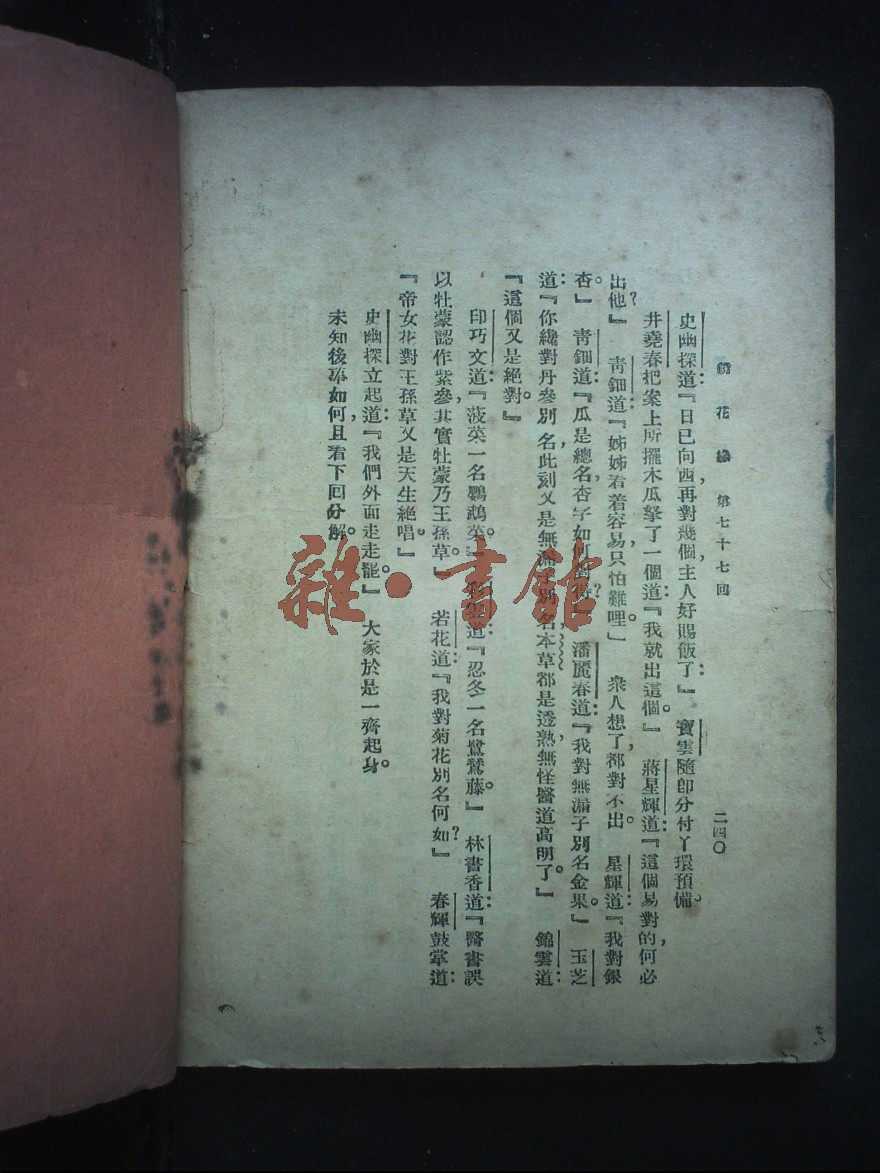 鏡花緣　第七十七回　二四〇
史幽探道：『日已向西，再對幾個，主人好賜飯了。』　寶雲隨卽分付丫環預備。
井堯春把案上所擺木瓜拏了一個道：『我就出這個。』　蔣星輝道：『這個易對的，何必
出他？』　青鈿道：『姊姊看着容易，只怕難哩。』　衆人想了，都對不出。　星輝道：『我對銀
杏。』　青鈿道：『瓜是總名，杏字如何對得？』　潘麗春道：『我對無漏子別名金果。』　玉芝
道：『你纔對丹參別名，此刻又是無漏子別名，本草都是透熟，無怪醫道高明了。』　錦雲道：
『這個又是絕對。』
印巧文道：『菠菜一名鸚鵡菜。』　雲道：『忍冬一名鷺鷥藤。』　林書香道：『醫書誤
以牡蒙認作紫參，其實牡蒙乃王孫草。』　若花道：『我對菊花別名何如？』　春輝鼓掌道：
『帝女花對王孫草，又是天生絕唱。』
史幽探立起道：『我們外面走走罷。』　大家於是一齊起身。
未知後事如何，且看下回分解。
雜·書館